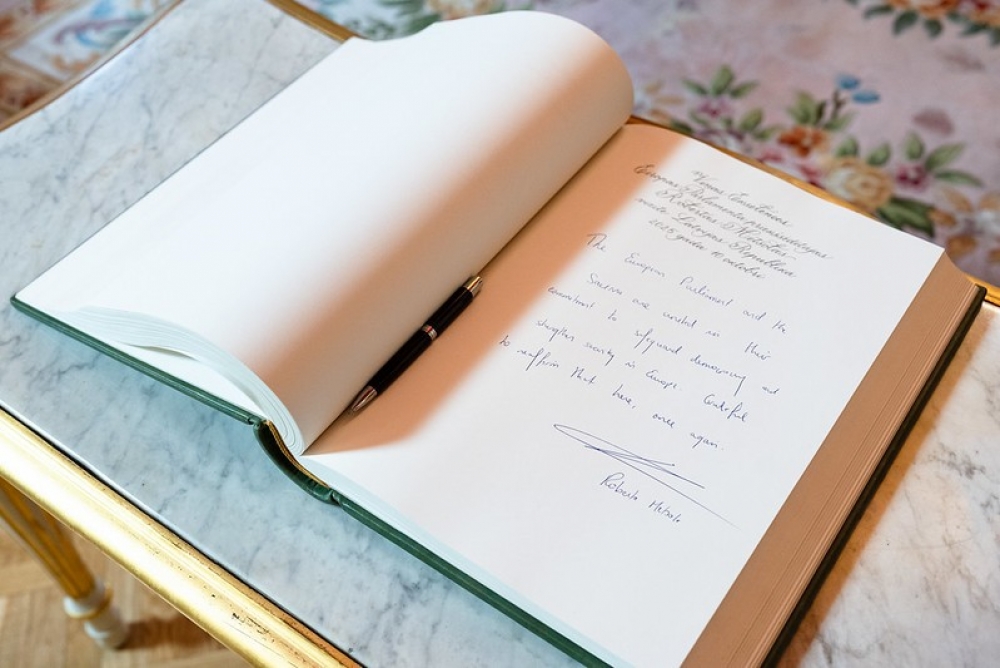 Viņas Ekselences
Eiropas Parlamenta priekšsēdētājas
Robertas Metsolas
vizīte Latvijas Republikā
2025. gada 10. oktobrī
The European Parliament and the
Saeima are united in their
commitment to safeguard democracy and
strengthen security in Europe. Grateful
to reaffirm that here, once again.
Roberta Metsola